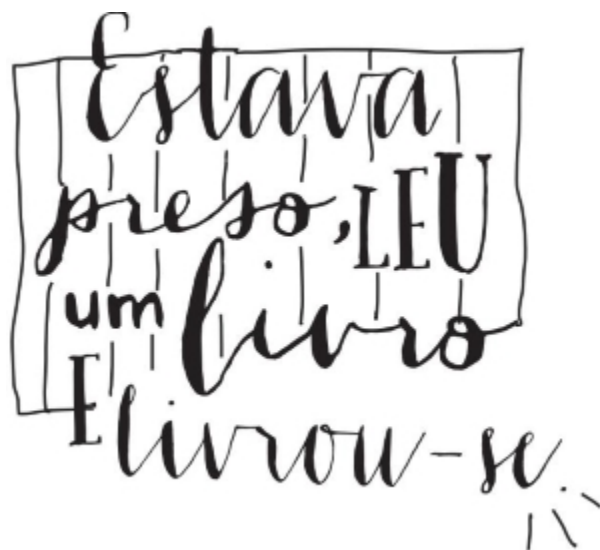 Estava
preso, LEU
um livro
E livrou-se.